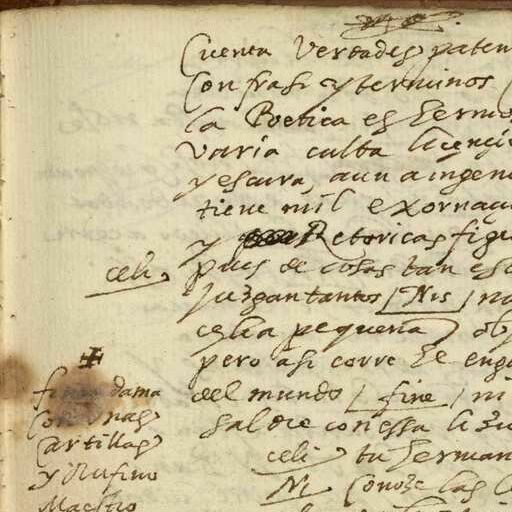 Cuenta Verdades paten
Con frasi y terminos
la Poetica es hermo
varia culta licençi
y escura, aun a ingeni
tiene mil exornaci
y Retoricas figu
celi. pues de cosas tan es
juzgan tantos / Nis / no
celia pequeña
pero asi corre el eng
del mundo / fine / ni
sal de con essa
celi tu herman
Ni Conoze las
dama
Con unas
Cartillas
y Rufino
Maestro